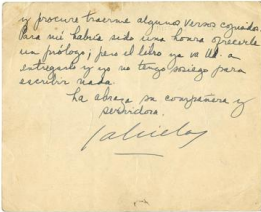 y procure traerme algunos versos copiados.
Para mí habría sido una honra ofrecerle
un prólogo; pero el libro ya va Ud. a
entregarlo y yo no tengo sosiego para
escribir nada.
La abraza su compañera y
servidora.
Gabriela